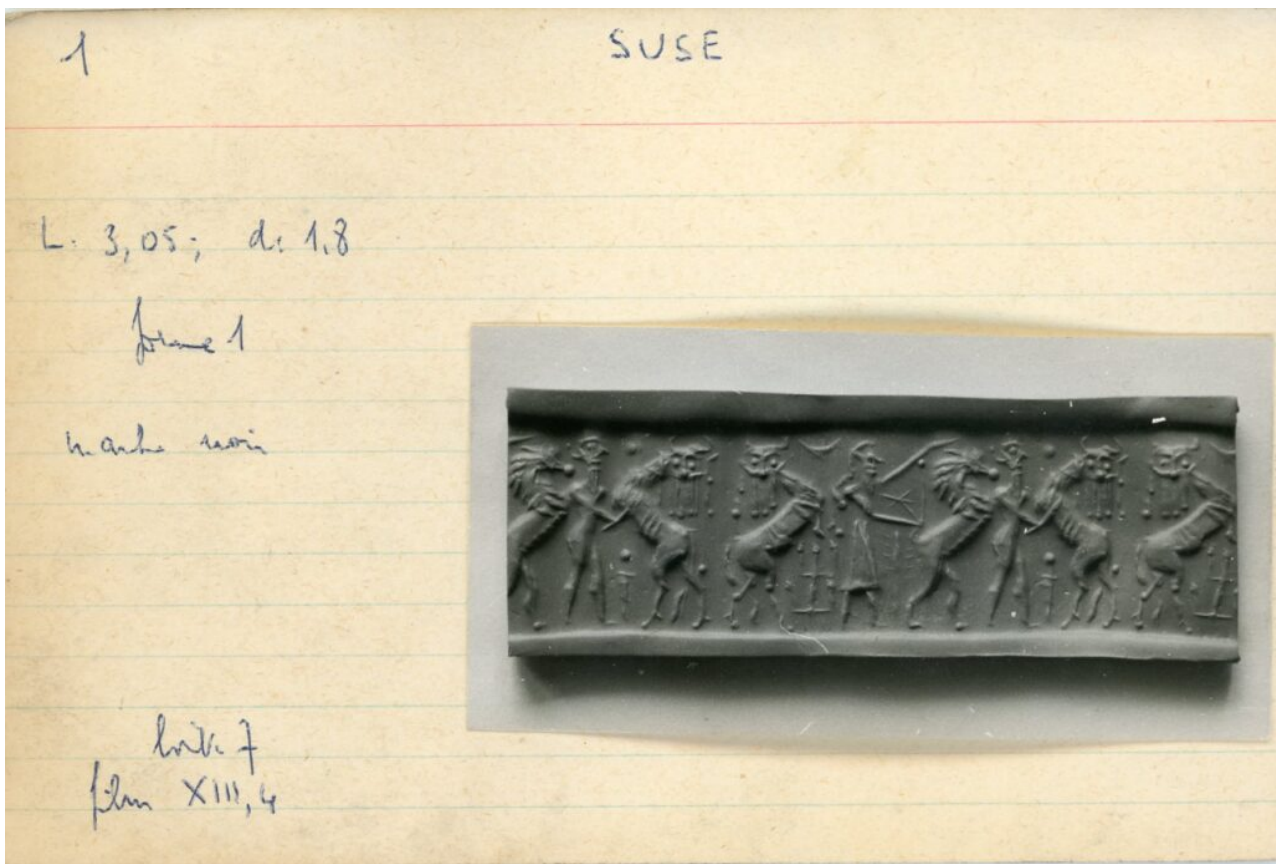 1 SUSE
L. 3,05; d: 1,8
forme 1
marbre noir
boîte 7
film XIII, 4